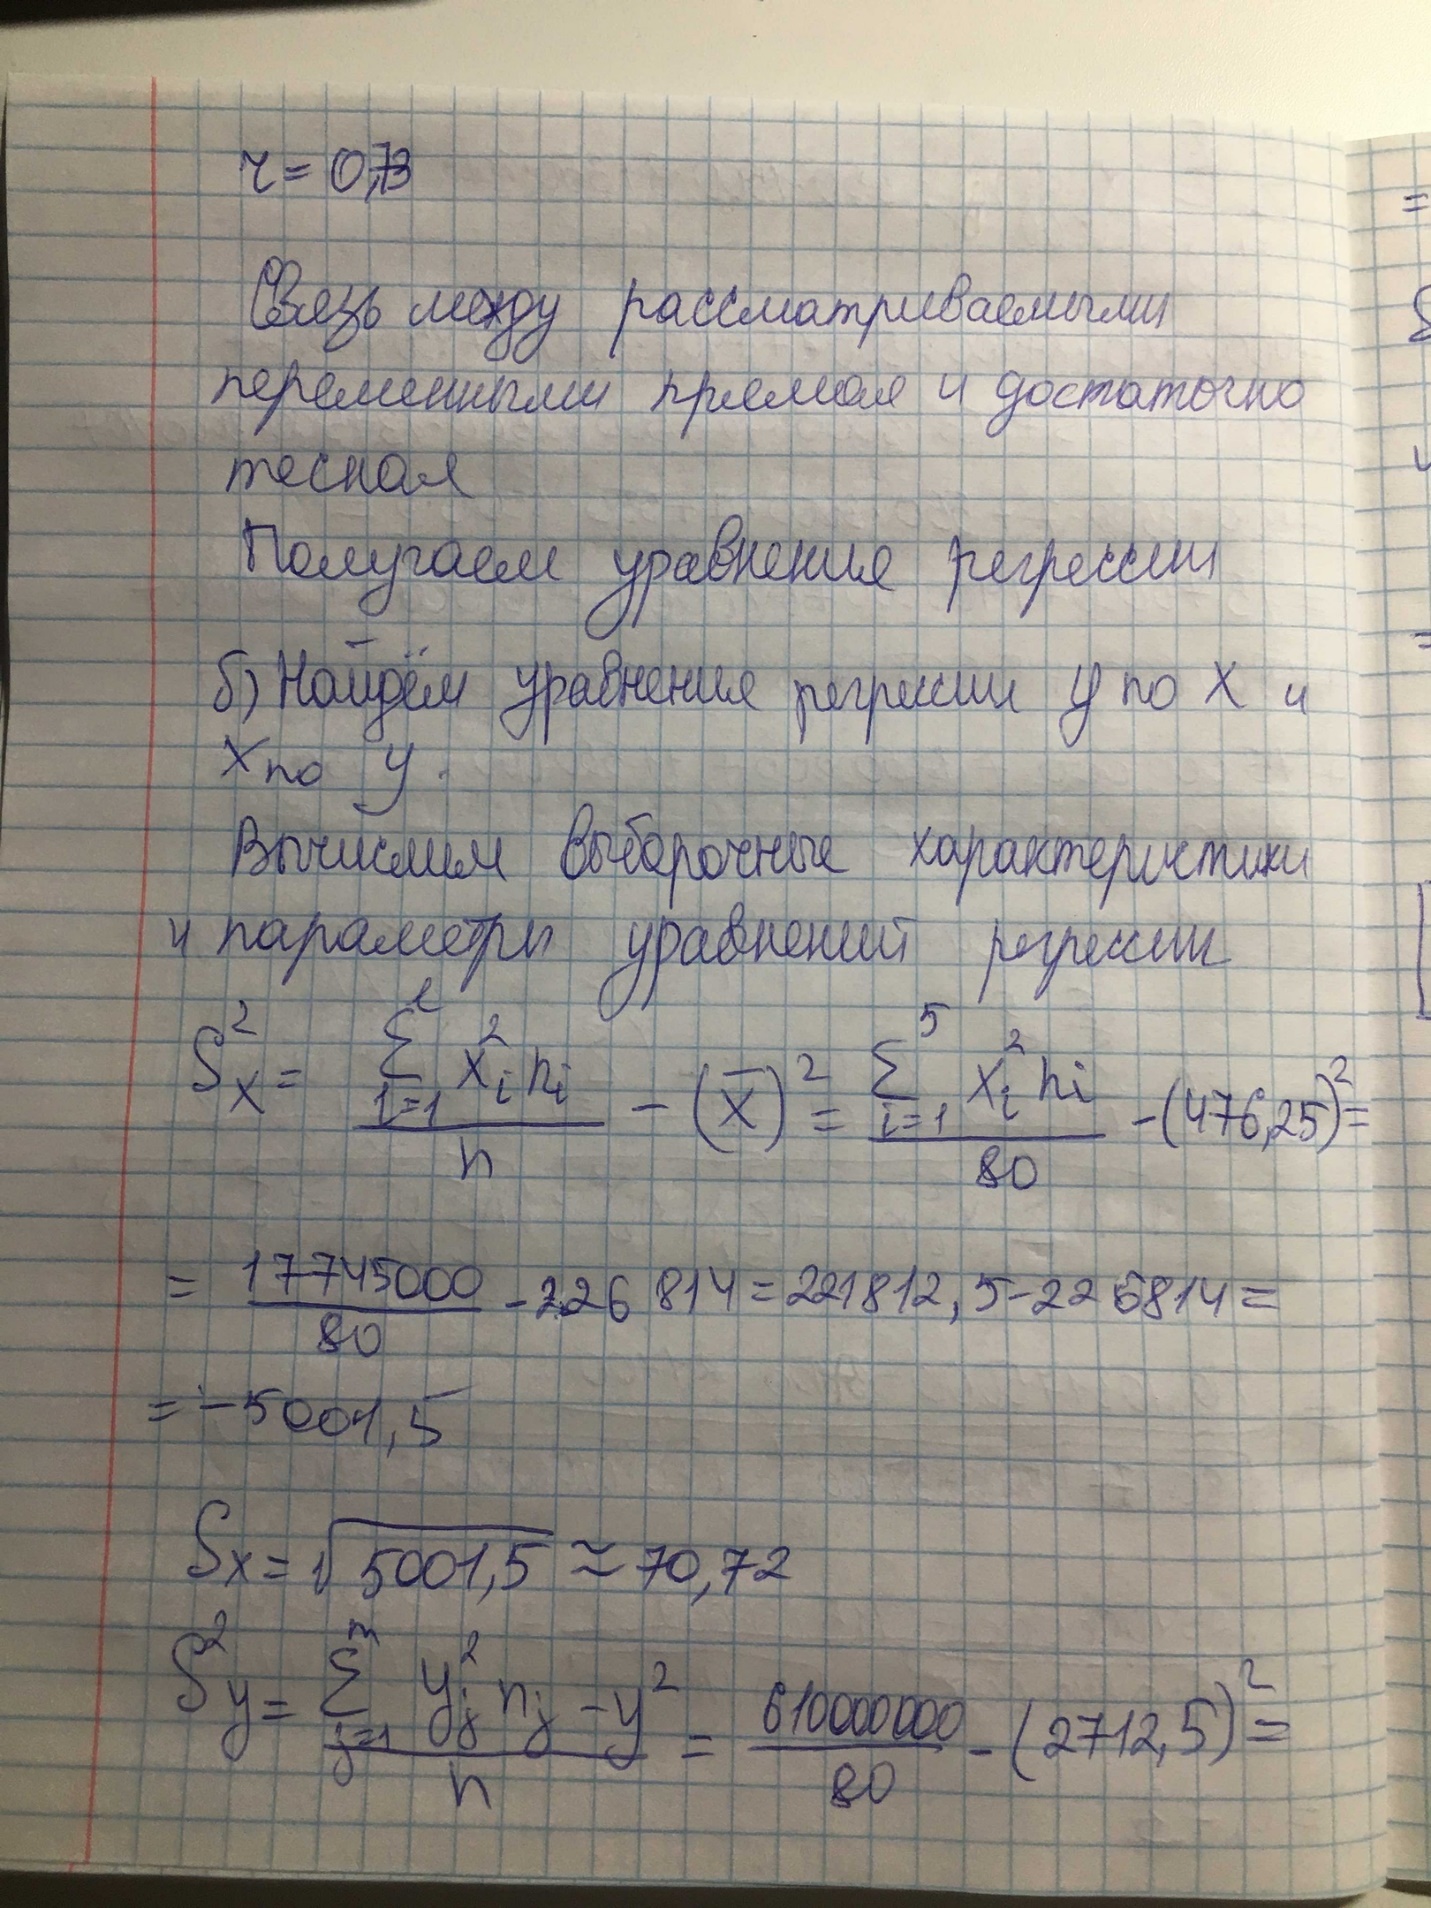 r = 0,73
Связь между рассматриваемыми
переменными прямая и достаточно
тесная
Получаем уравнение регрессии
б) Найдём уравнение регрессии y по x и
x по y.
Вычислим выборочные характеристики
и параметры уравнений регрессии
S²x = (Σ^l_{i=1} x²i ni)/n - (x̄)² = (Σ^5_{i=1} x²i ni)/80 - (476,25)² =
= 17745000/80 - 226 814 = 221812,5 - 226814 =
= -5001,5
Sx = √5001,5 ≈ 70,72
S²y = (Σ^m_{j=1} y²j nj - y²)/n = 610000000/80 - (2712,5)² =